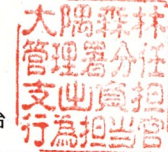 大隅森林
管理署分任
支出負担
行為担当官